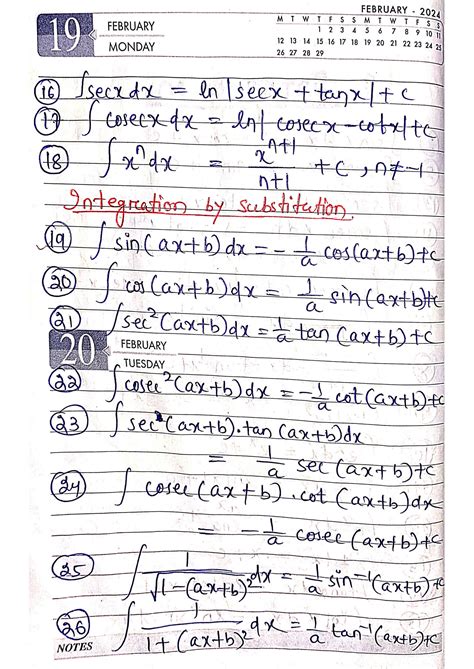 FEBRUARY - 2024
19 FEBRUARY
MONDAY
M T W T F S S M T W T F S S
1 2 3 4 5 6 7 8 9 10 11
12 13 14 15 16 17 18 19 20 21 22 23 24 25
26 27 28 29
(16) ∫secx dx = ln|secx + tanx| + c
(17) ∫cosecx dx = ln|cosecx - cotx| + c
(18) ∫xⁿ dx = xⁿ⁺¹/n+1 + c, n≠-1
Integration by substitution.
(19) ∫sin(ax+b) dx = -1/a cos(ax+b)+c
(20) ∫cos(ax+b) dx = 1/a sin(ax+b)+c
(21) ∫sec²(ax+b) dx = 1/a tan(ax+b)+c
20 FEBRUARY
TUESDAY
(22) ∫cosec²(ax+b) dx = -1/a cot(ax+b)+c
(23) ∫sec²(ax+b).tan(ax+b)dx
= 1/a sec(ax+b)+c
(24) ∫cosec(ax+b).cot(ax+b)dx
= -1/a cosec(ax+b)+c
(25) ∫1/√1-(ax+b)² dx = 1/a sin⁻¹(ax+b)+c
(26) ∫1/1+(ax+b)² dx = 1/a tan⁻¹(ax+b)+c
NOTES